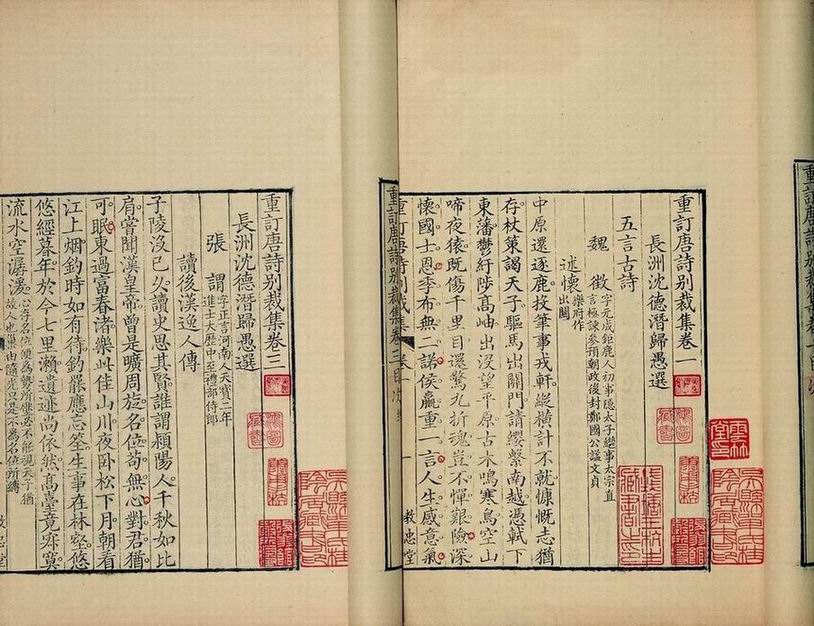 重訂唐詩別裁集卷一
長洲沈德潛歸愚選
五言古詩
魏 徵
字元成鉅鹿人初事隱太子繼事太宗直
言極諫參預朝政後封鄭國公諡文貞
述懷
樂府作
出關
中原還逐鹿投筆事戎軒縱橫計不就慷慨志猶
存杖策謁天子驅馬出關門請纓繫南越憑軾下
東藩鬱紆陟高岫出沒望平原古木鳴寒鳥空山
啼夜猿既傷千里目還驚九折魂豈不憚艱險深
懷國士恩季布無二諾侯嬴重一言人生感意氣
重訂唐詩別裁集 卷一 一 教忠堂
重訂唐詩別裁集卷三
長洲沈德潛歸愚選
張 謂
字正言河南人天寶二年
進士大歷中至禮部侍郎
讀後漢逸人傳
子陵沒已久讀史思其賢誰謂潁陽人千秋如比
肩嘗聞漢皇帝曾是曠周旋名位苟無心對君猶
可眠東過富春渚樂此佳山川夜臥松下月朝看
江上烟釣時如有待釣罷應忘筌生事在林壑悠
悠經暮年於今七里瀨遺迹尚依然高臺竟寂寞
流水空潺湲
心存名位便為勢所懾必不能視天子猶
故人也巢由隨光只是不為名位所縛